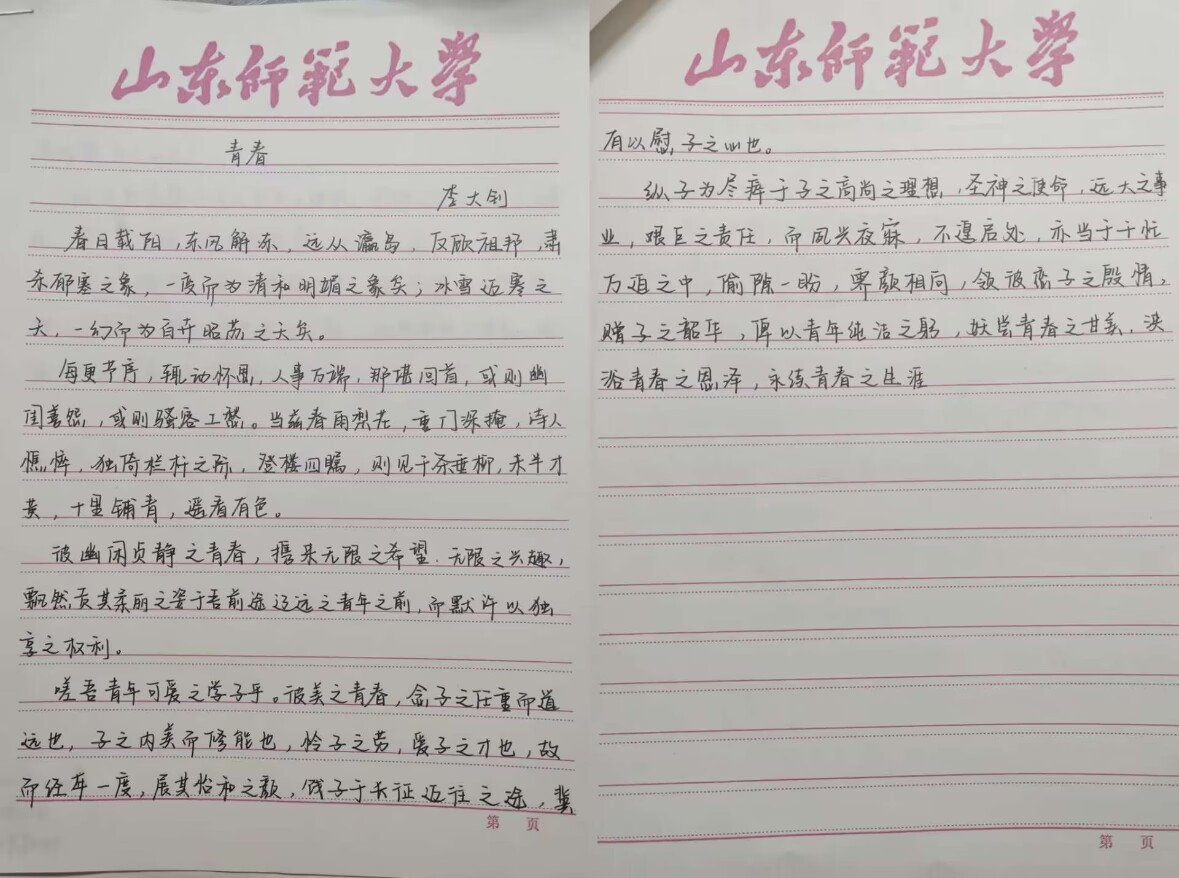 山东师范大学
青春
李大钊
春日载阳，东风解冻，远从瀛岛，反顾祖邦，肃
杀郁塞之象，一变而为清和明媚之象矣；冰雪沍寒之
天，一幻而为百卉昭苏之天矣。
每更节序，辄动怀思，人事万端，那堪回首，或则幽
闺善怨，或则骚客工愁。当兹春雨梨花，重门深掩，诗人
憔悴，独倚栏杆之际，登楼四瞩，则见千条垂柳，未半才
黄，十里铺青，遥看有色。
彼幽闲贞静之青春，携来无限之希望、无限之兴趣，
飘然贡其柔丽之姿于吾前途辽远之青年之前，而默许以独
享之权利。
嗟吾青年可爱之学子乎。彼美之青春，念子之任重而道
远也，子之内美而修能也，怜子之劳，爱子之才也，故
而经年一度，展其怡和之颜，饯子于长征迈往之途，冀
第 页
山东师范大学
有以慰子之心也。
纵子为尽瘁于子之高尚之理想，圣神之使命，远大之事
业，艰巨之责任，而夙兴夜寐，不遑启处，亦当于千忙
万迫之中，偷隙一盼，霁颜相向，领彼恋子之殷情，
赠子之韶华，俾以青年纯洁之躬，饫尝青春之甘美，浃
浴青春之恩泽，永续青春之生涯
第 页